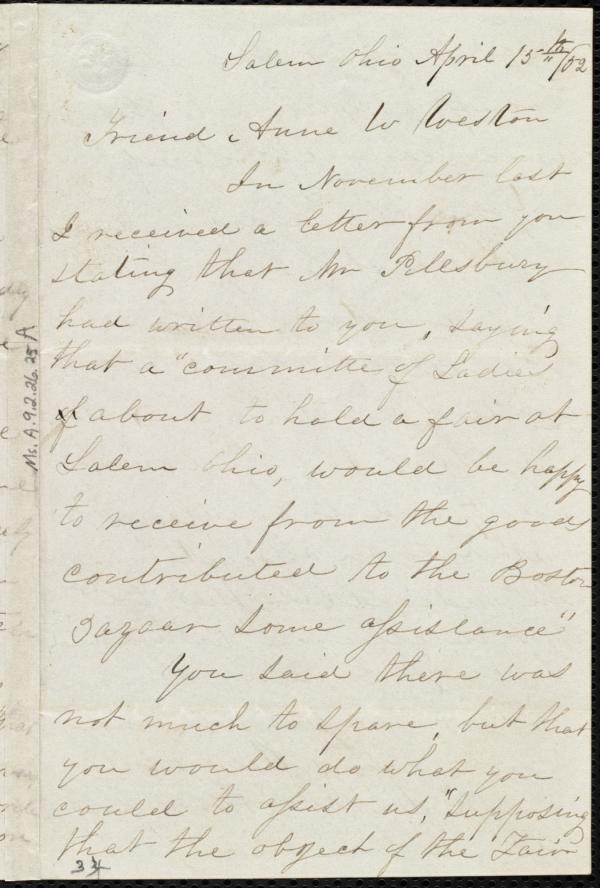 Salem Ohio April 15th/52
Friend Anne W Weston
In November last
I received a letter from you
stating that Mr Pillsbury
had written to you, saying
that a "committe of Ladies
about to hold a fair at
Salem Ohio, would be happy
to receive from the goods
contributed to the Boston
Bazaar some assistance"
You said there was
not much to spare, but that
you would do what you
could to assist us, "supposing
that the object of the Fair
Ms. A. 9. 2. 26. 25 A
34